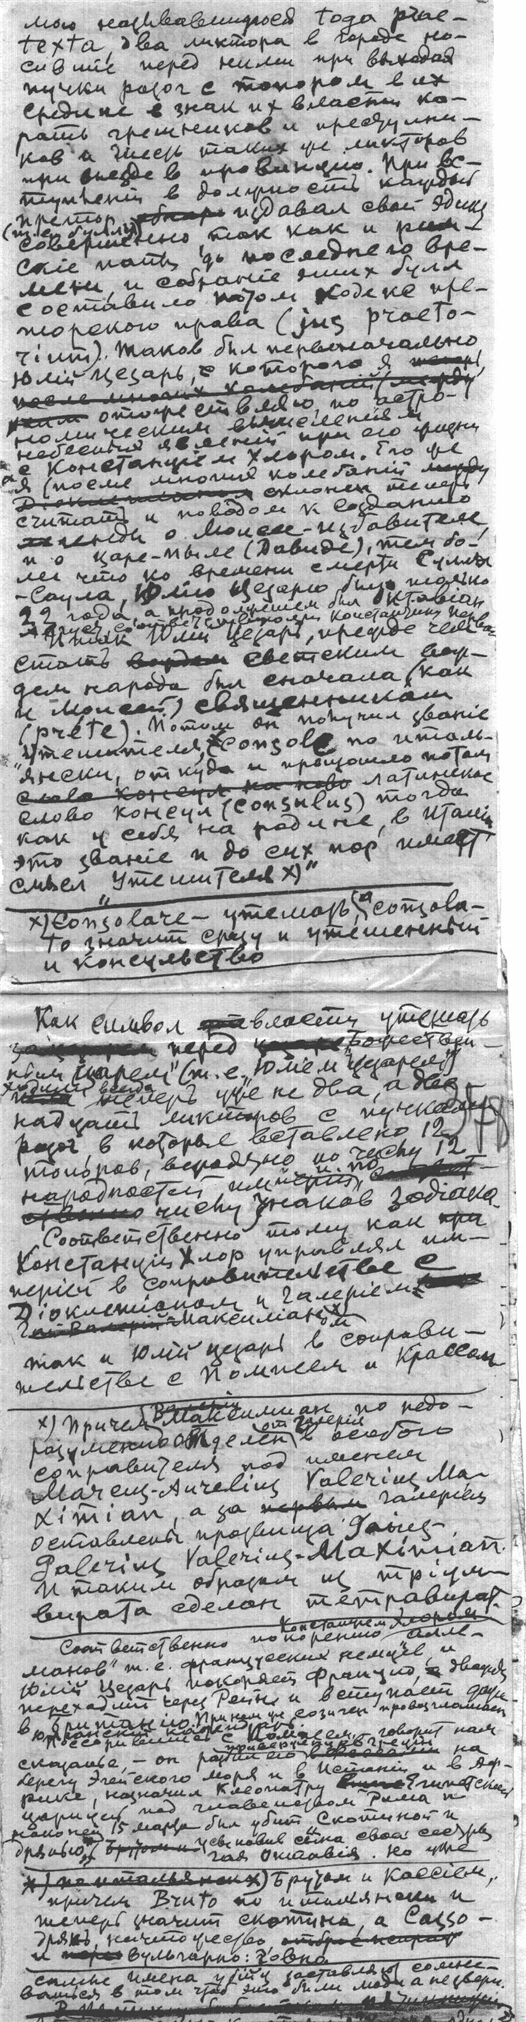 мою называвшуюся toga prae-
texta, два ликтора в городе но-
сившие перед ними при выходах
пучки розог с топором в их
средине в знак их власти ка-
рать грешников и преступни-
ков и шесть таких же ликторов
при въезде в провинцию. При вс-
туплении в должность каждый
претор издавал свой эдикт
(т.е. буллу)
совершенно так как и рим-
скіе папы до последнего вре-
мени, и собраніе этих булл
составило потом кодекс пре-
торского права (jus praeto-
rium). Таков был первоначально
Юлій Цезарь, которого я
после многих колебаній
отожествляю по астро-
номическим вычисленіям
небесных явленій при его жизни
с Констанціем Хлором. Его же
я (после многих колебаній
склонен теперь
считать и поводом к созданию
легенды о Моисее-избавителе,
и о царе-Милом (Давиде), тем бо-
лее что ко времени смерти Суллы
-Саула, Юлію Цезарю было только
22 года, а продолжателем был Октавіан
Август соответствующий Константину
Итак Юлій Цезарь, прежде чем
стать светским вож-
дем народа был сначала (как
и Моисей) священником
(prête). Потом он получил званіе
"Утешителя", Console по италь-
янски, откуда и произошло потом
слово консул на ново латинское
слово консул (consulus) тогда
как у себя на родине, в Италіи
это званіе и до сих пор имеет
смысл "Утешителя x)"
x) Consolare – утешать, а consola-
to значит сразу и утешенный
и консульство
Как символ власти утешать
перед божествен-
ным царем" (т.е. Юліем Цезарем)
ходили всегда
теперь уже не два, а две-
надцать ликторов с пучками
розог, в которые вставлено 12
топоров, вероятно по числу 12
народностей имперіи, и по
числу знаков зодіака.
Соответственно тому как
Констанцій Хлор управлял им-
періей в соправительстве с
Діоклетіаном и Галеріем
Максиміаном x)
так и Юлій Цезарь в соправи-
тельстве с Помпеем и Крассом
x) Причем Валерій Максимиан по недо-
разумению отделен от Галерія в особого
соправителя под именем
Marcus-Aurelius Valerius Ma-
ximian, а за Галеріем
оставлены прозвища Gaius-
Galerius Valerius-Maximian.
И таким образом из тріум-
вирата сделан тетравират.
Соответственно покоренію Констанцием Хлором "алле-
манов" т.е. французских немцев и
Юлій Цезарь покоряет Францію, дважды
переходит через Рейн и вступает даже
в Британію.
с Помпеем, говорит нам
сказанье, – он разбил его
берегу Эгейского моря и в Испаніи и в Аф-
рике, назначил Клеопатру Египетской
царицей под главенством Рима и
наконец 15 марта был убит Скотиной и
Дрянью, усыновив сына своей сестры
Октавія. Но уже
x) Брутом и Кассіем,
причем Bruto по итальянски и
теперь значит скотина, а Casso-
дрянь, ничтожество
и вульгарно:
самые имена уже заставляют сомне-
ваться в том что это были люди а не звери.